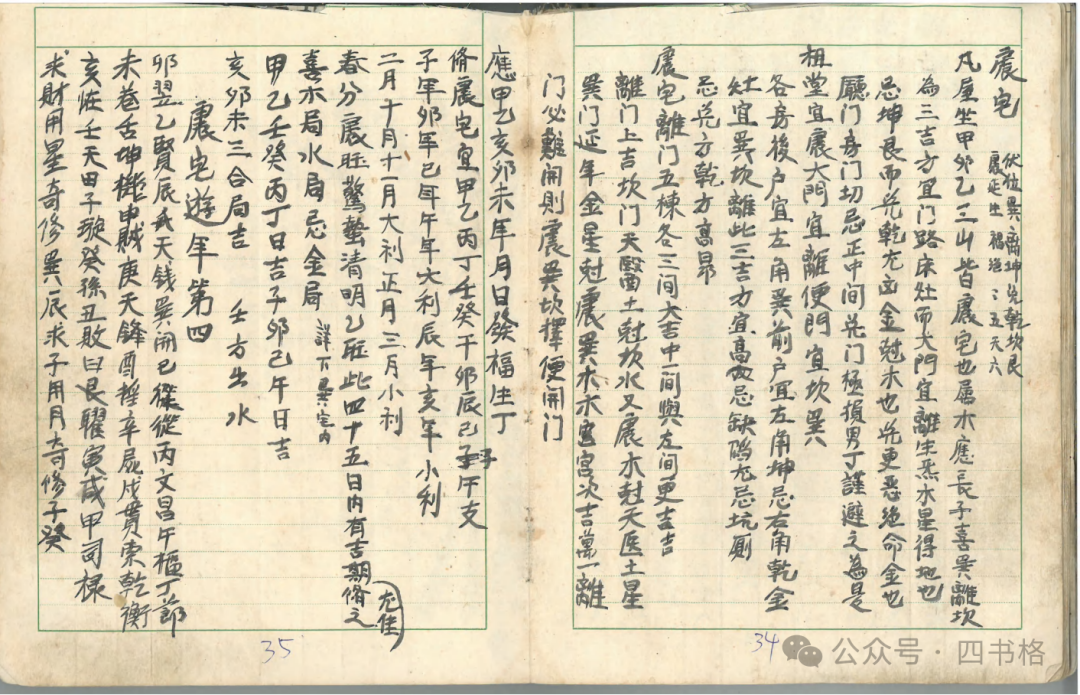 震宅
伏位巽离坤兑乾坎艮
震延生禍絕五天六
凡屋坐甲卯乙三山皆震宅也屬木應長子喜巽離坎
為三吉方宜門路床灶而大門宜離生炁水星得地也
忌坤艮而兑乾尤凶金尅木也兑更恶絕命金也
廳门房门切忌正中间兑门極損男丁謹避之為是
祖堂宜震大门宜離便門宜坎巽
各房後户宜左角巽前户宜左角坤忌右角乾金
灶宜巽坎離此三吉方宜高忌缺陷尤忌坑厠
忌兑方乾方高昂
震宅離门五棟各三间大吉中一间與左间更吉
離门上吉坎门天醫土尅坎水又震木尅天医土星
巽门延年金星尅震巽木本宫次吉萬一離
门必難開則震巽坎擇便開门
應甲乙亥卯未年月日發福生丁
脩震宅宜甲乙丙丁壬癸干卯辰巳子午支
子年卯年巳年午年大利辰年亥年小利
二月十月十一月大利正月三月小利
春分震旺驚蟄清明乙旺此四十五日内有吉期脩之
尤佳
喜木局水局忌金局 詳下巽宅内
甲乙壬癸丙丁日吉子卯巳午日吉
亥卯未三合局吉 壬方出水
震宅遊年第四
卯翌乙賢辰天钱巽闹巳從丙文昌午樞丁節
未卷舌坤機申賊庚天鋒酉辛屍戌貫索乾衡
亥恠壬天田子璇癸孫丑敗臼艮耀寅咸甲司禄
求財用星奇修巽辰求子用月奇修子癸
35
34
公众号·四书格